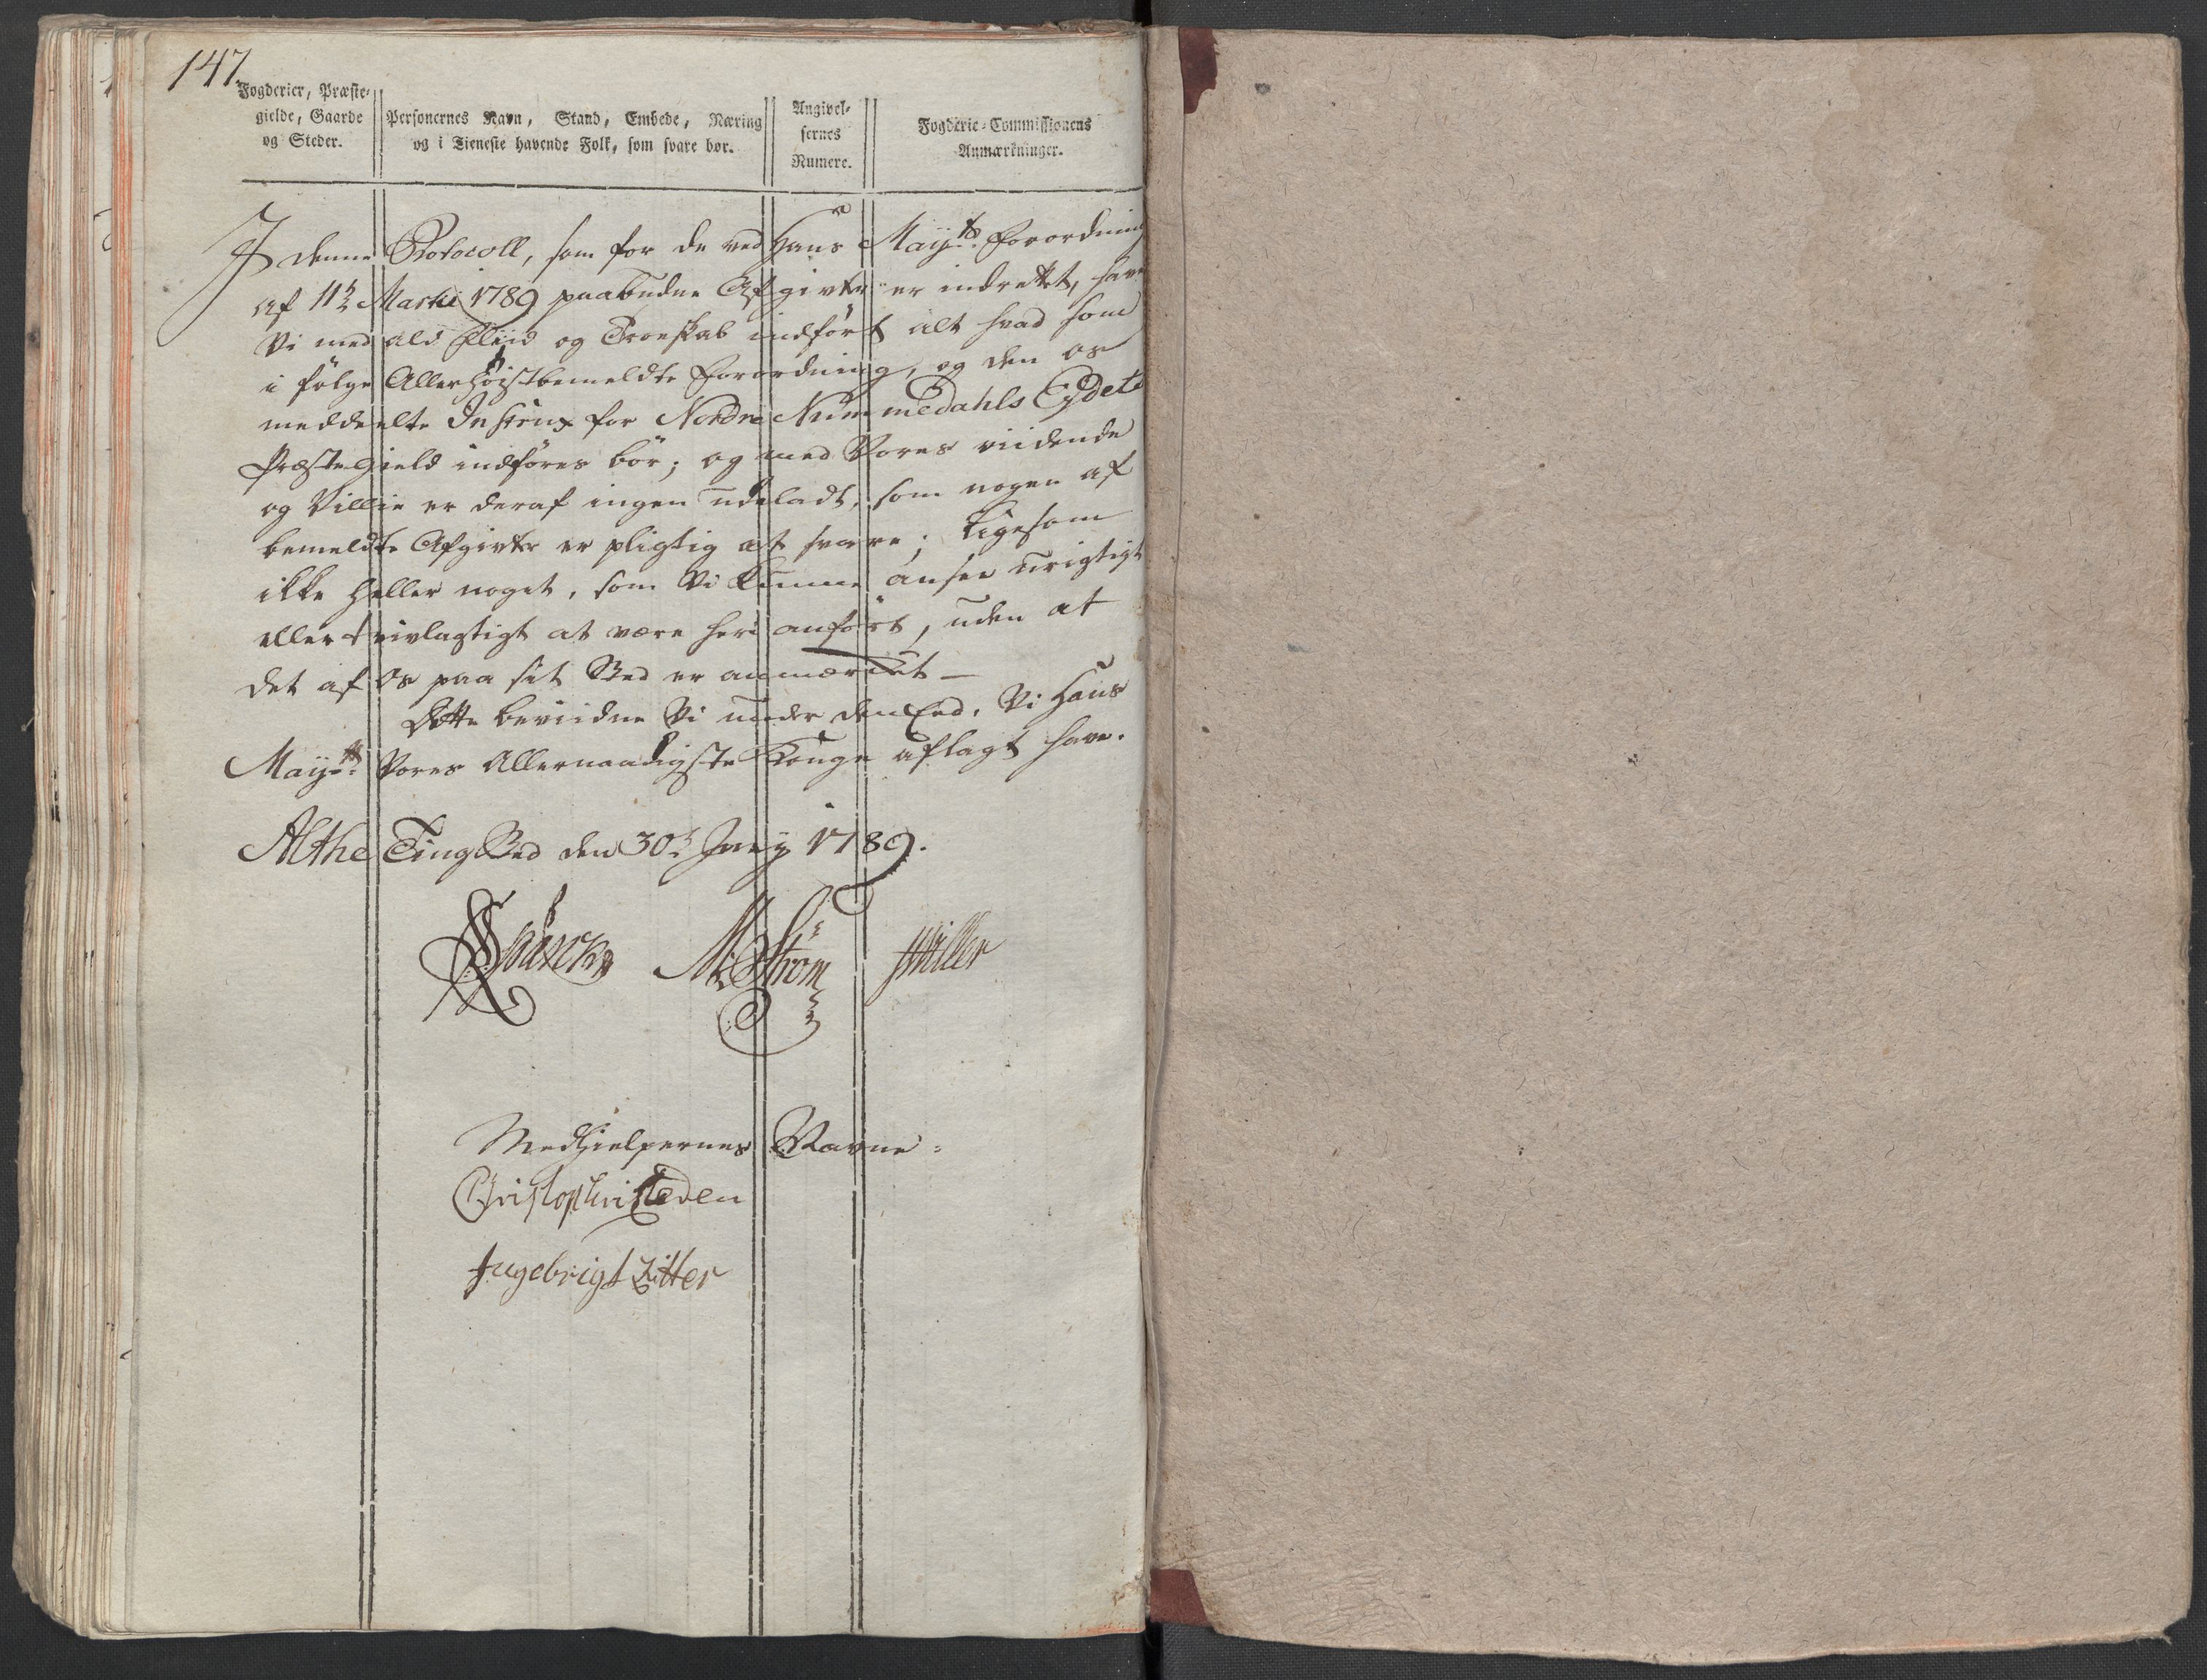 147.
Fogderier, Præste-
gielde, Gaarde
og Steder.
Personernes Navn, Stand, Embede, Næring
og i Tieneste havende Folk, som svare bør.
Angivel-
sernes
Numere.
Fogderie-Commissionens
Anmærkninger.
I denne Protocoll, som for de ved Hans Mayts. Forordning
af 11te Martii 1789 paabudne Afgivter er indrettet, have
Vi med ald Fliid og Troeskab indført alt hvad som
i følge Allerhøistbemeldte Forordning, og den os
meddeelte Instrux for Nordre Nummedahls Eydets
Præstegield indføres bør; og med Vores viidende
og Villie er deraf ingen udeladt, som nogen af
bemeldte Afgivter er pligtig at svare; Ligesom
ikke heller noget, som Vi kunne ansee urigtigt
eller tvivlagtigt at være heri anført, uden at
det af Os paa sit Sted er anmærket —
Dette beviidne Vi under den Eed, Vi Hans
Mayts. Vores Allernaadigste Konge aflagt have.
Althe TingSted den 30te Juny 1789.
MStrøm
Miller
Medhielpernes Navne:
Ingebrigt Zitter